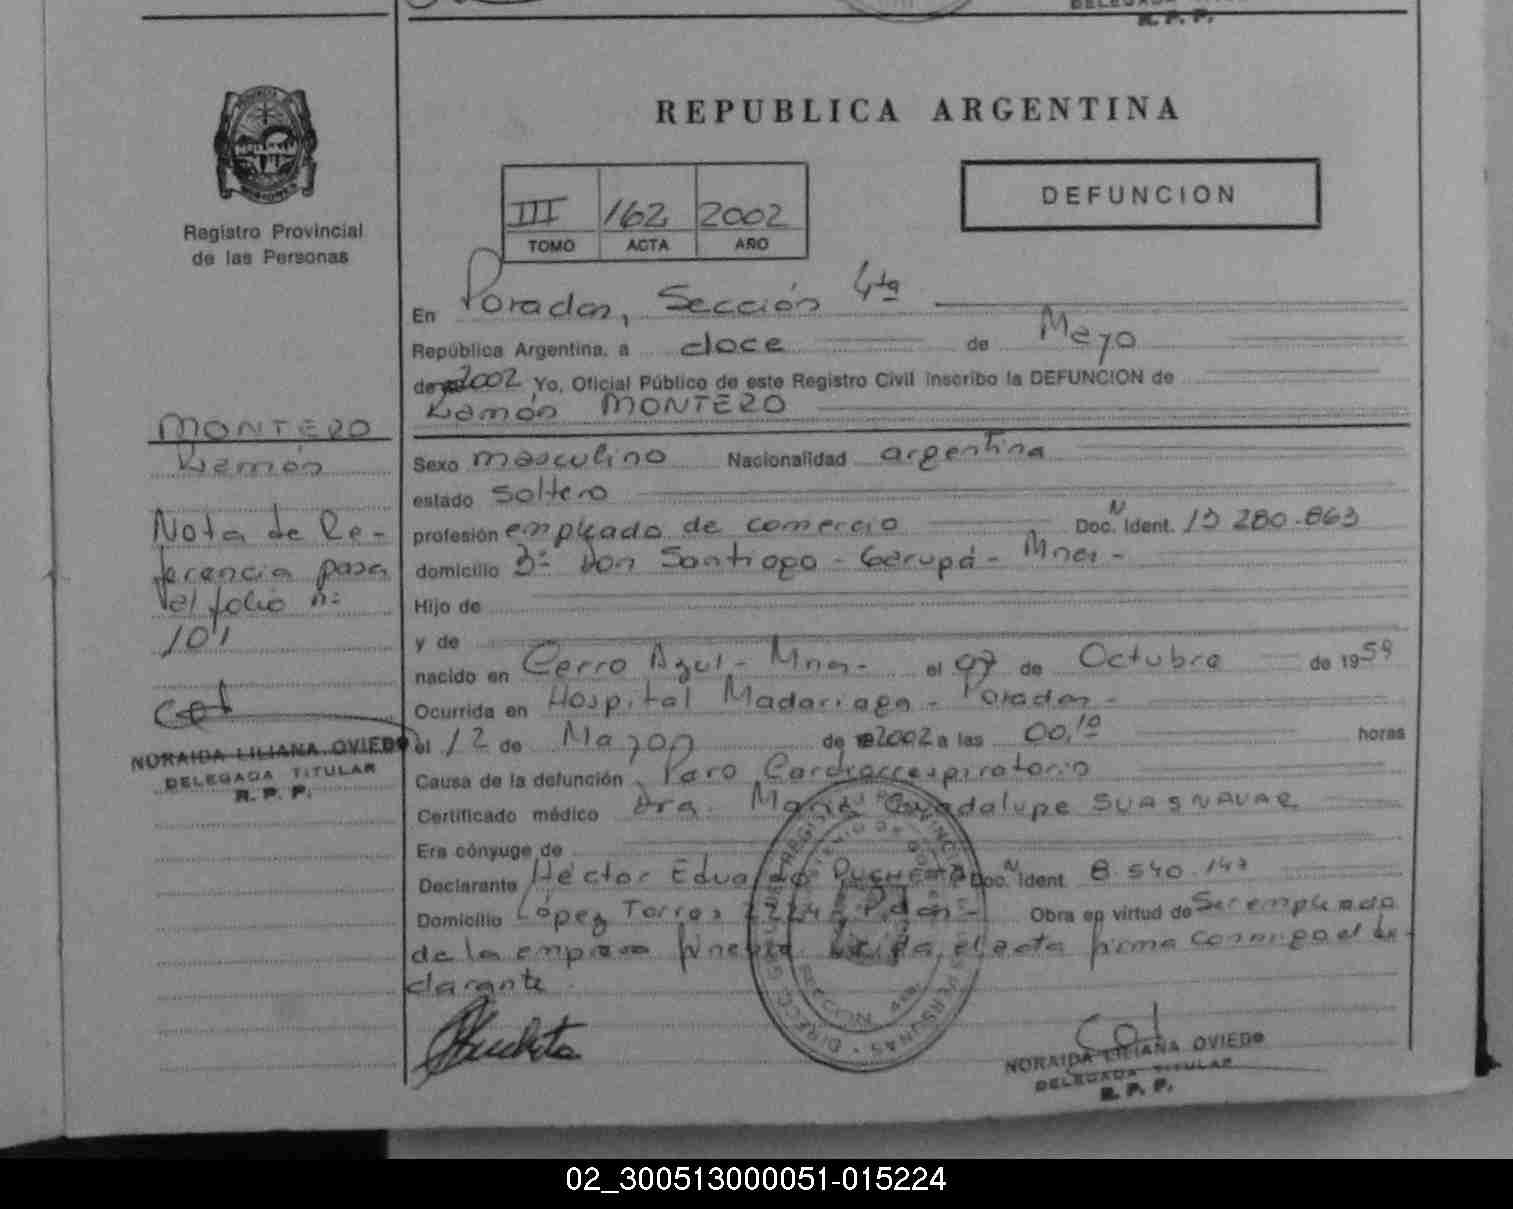 R. P. P.
REPUBLICA ARGENTINA
DEFUNCION
III 162 2002
TOMO ACTA AÑO
Registro Provincial
de las Personas
En Posadas, Sección 4ta
República Argentina, a doce de Mayo
de 2002 Yo, Oficial Público de este Registro Civil inscribo la DEFUNCION de
Ramón MONTERO
MONTERO
Ramón
Nota de Re-
ferencia pasa
el folio n:
101
NORAIDA LILIANA OVIEDO
DELEGADA TITULAR
R. P. P.
Sexo masculino Nacionalidad argentina
estado soltero
profesión empleado de comercio Doc. Ident. 13 280.863
domicilio Bº Don Santiago - Garupá - Mnes -
Hijo de
y de
nacido en Cerro Azul - Mnes - el 07 de Octubre de 1959
Ocurrida en Hospital Madariaga - Posadas -
el 12 de Mayo de 2002 a las 00,10 horas
Causa de la defunción Paro Cardiorrespiratorio
Certificado médico Dra. María Guadalupe SUASNAVAR
Era cónyuge de
Declarante Héctor Eduardo PUCHETA Doc. Ident. 8.540.147
Domicilio López Torres 2224 - Pdas - Obra en virtud de Ser empleado
de la empresa fúnebre. Leída el acta firma conmigo el de-
clarante.
NORAIDA LILIANA OVIEDO
DELEGADA TITULAR
R. P. P.
02_300513000051-015224